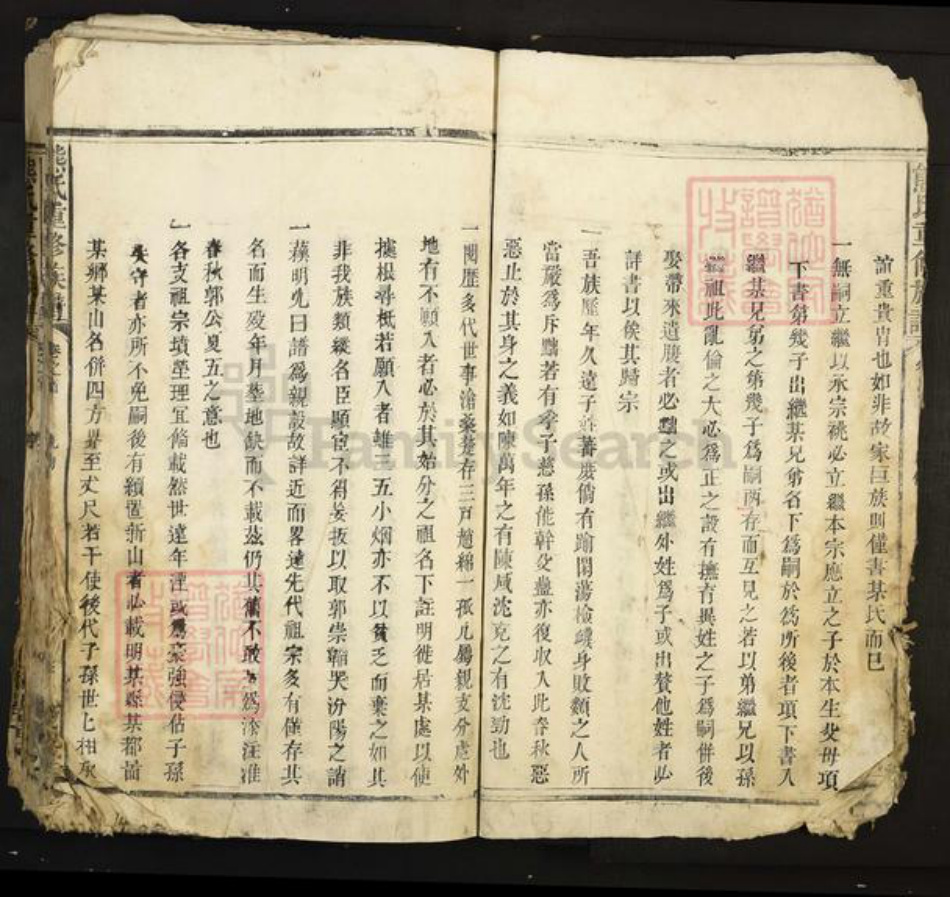 諭重貴胄也如非故家巨族則僅書某氏而已
一無嗣立繼以承宗祧必立繼本宗應立之子於本生父母項
下書第幾子出繼某兄弟名下為嗣於為所後者項下書入
繼某兄弟之第幾子為嗣兩存而互見之若以弟繼兄以孫
祖此亂倫之大必為正之設有撫育異姓之子為嗣併後
娶帶來遺腹者必黜之或出繼外姓為子或出贅他姓者必
詳書以俟其歸宗
一吾族歷年久遠子孫蕃衍倘有踰閑蕩檢身敗類之人所
當嚴為斥黜若有孝子慈孫能幹父蠱亦復收入此春秋惡
惡止於其身之義如陳萬年之有陳咸沈充之有沈勁也
一閱歷多代世事滄桑楚存三戶趙綿一孤凡屬親支分處外
地有不願入者必於其始分之祖名下註明徙居某處以便
據根尋柢若願入者雖三五小烟亦不以貧乏而棄之如其
非我族類縱名臣顯宦不得妄扳以取郭崇韜哭汾陽之誚
一蘇明允曰譜為親設故詳近而畧遠先代祖宗多有僅存其
名而生歿年月塟地缺而不載茲仍其舊不敢為添注准
春秋郭公夏五之意也
一各支祖宗墳塋理宜俻載然世遠年湮或為豪強侵佔子孫
失守者亦所不免嗣後有續置新山者必載明某縣某都啚
某鄉某山名併四方界至丈尺若干使後代子孫世匕相承
熊氏重修族譜